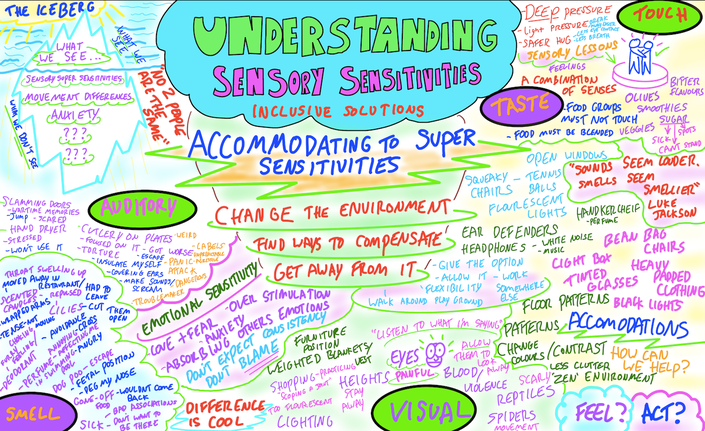 THE ICEBERG
WHAT
WE
SEE...
WHAT WE
SEE
SENSORY SUPER SENSITIVITIES
MOVEMENT DIFFERENCES
ANXIETY
???
???
WHAT WE DON'T SEE
"NO 2 PEOPLE
ARE THE
SAME"
UNDERSTANDING
SENSORY SENSITIVITIES
INCLUSIVE SOLUTIONS
ACCOMMODATING TO SUPER
SENSITIVITIES
CHANGE THE ENVIRONMENT
FIND WAYS TO COMPENSATE
GET AWAY FROM IT
TOUCH
- DEEP PRESSURE
- LIGHT PRESSURE
- SAFER HUG
- LESS BREATH
SENSORY LESSONS
FEELINGS
A COMBINATION
OF SENSES
TASTE
- FOOD GROUPS
MUST NOT TOUCH
- FOOD MUST BE BLENDED
OLIVES
SMOOTHIES
VEGGIES
BITTER
FLAVOURS
SUGAR
SPOTS
SICKLY
CAN'T STAND
OPEN WINDOWS
SQUEAKY - TENNIS
CHAIRS BALLS
FLUORESCENT
LIGHTS
"SOUNDS SEEM LOUDER,
SMELLS SEEM
SMELLIER"
LUKE
JACKSON
HANDKERCHEIF
- PERFUME
EAR DEFENDERS
HEADPHONES - WHITE NOISE
- MUSIC
BEAN BAG
CHAIRS
- GIVE THE OPTION
- ALLOW IT - WORK
SOMEWHERE
ELSE
- FLEXIBILITY
WALK AROUND PLAY GROUND
LIGHT BOX
HEAVY
PADDED
CLOTHING
TINTED
GLASSES
BLACK LIGHTS
FLOOR PATTERNS
PATTERNS
ACCOMODATIONS
CHANGE
COLOURS/CONTRAST
LESS CLUTTER
'ZEN' ENVIRONMENT
HOW CAN
WE HELP?
FEEL?
ACT?
AUDITORY
SLAMMING DOORS
- WARTIME MEMORIES
- JUMP - SCARED
HAND DRYER
- STRESSED
- WON'T USE IT
- CUTLERY ON PLATES
- FOCUSED ON IT - GOT WORSE
- TORTURE
- ESCAPE
- ISOLATE MYSELF
- COVERING EARS
- MAKE SOUND/
SCREAM
- WEIRD
- LABELS
- UNPREDICTABLE
- PANIC
ATTACK
- DANGEROUS
TROUBLEMAKER
EMOTIONAL SENSITIVITY
- OVER STIMULATION
LOVE + FEAR
ANXIETY
ABSORBING OTHERS EMOTIONS
DON'T EXPECT CONSISTENCY
DON'T BLAME
THROAT SWELLING UP
MOVED AWAY IN
RESTAURANT/
HAD TO
LEAVE
SCENTED
CANDLES - REPULSED
LILIES - CUT THEM
OPEN
- AVOIDANCE
DOG POO - ESCAPE
- FETAL POSITION
- PEG MY NOSE
GONE-OFF - WOULDN'T COME
FOOD
BACK
- BAD ASSOCIATIONS
SICK - DON'T WANT TO
BE THERE
SMELL
DIFFERENCE
IS COOL
FURNITURE
POSITION
WEIGHTED BLANKETS/
VEST
SHOPPING - PRACTICING
TOO FLUORESCENT
LIGHTING
HEIGHTS
STAY
AWAY
"LISTEN TO WHAT I'M SAYING"
EYES
PAINFUL
ALLOW
THEM TO
LOOK
AWAY
BLOOD/
VIOLENCE
SCARY
REPTILES
SPIDERS
MOVEMENT
VISUAL